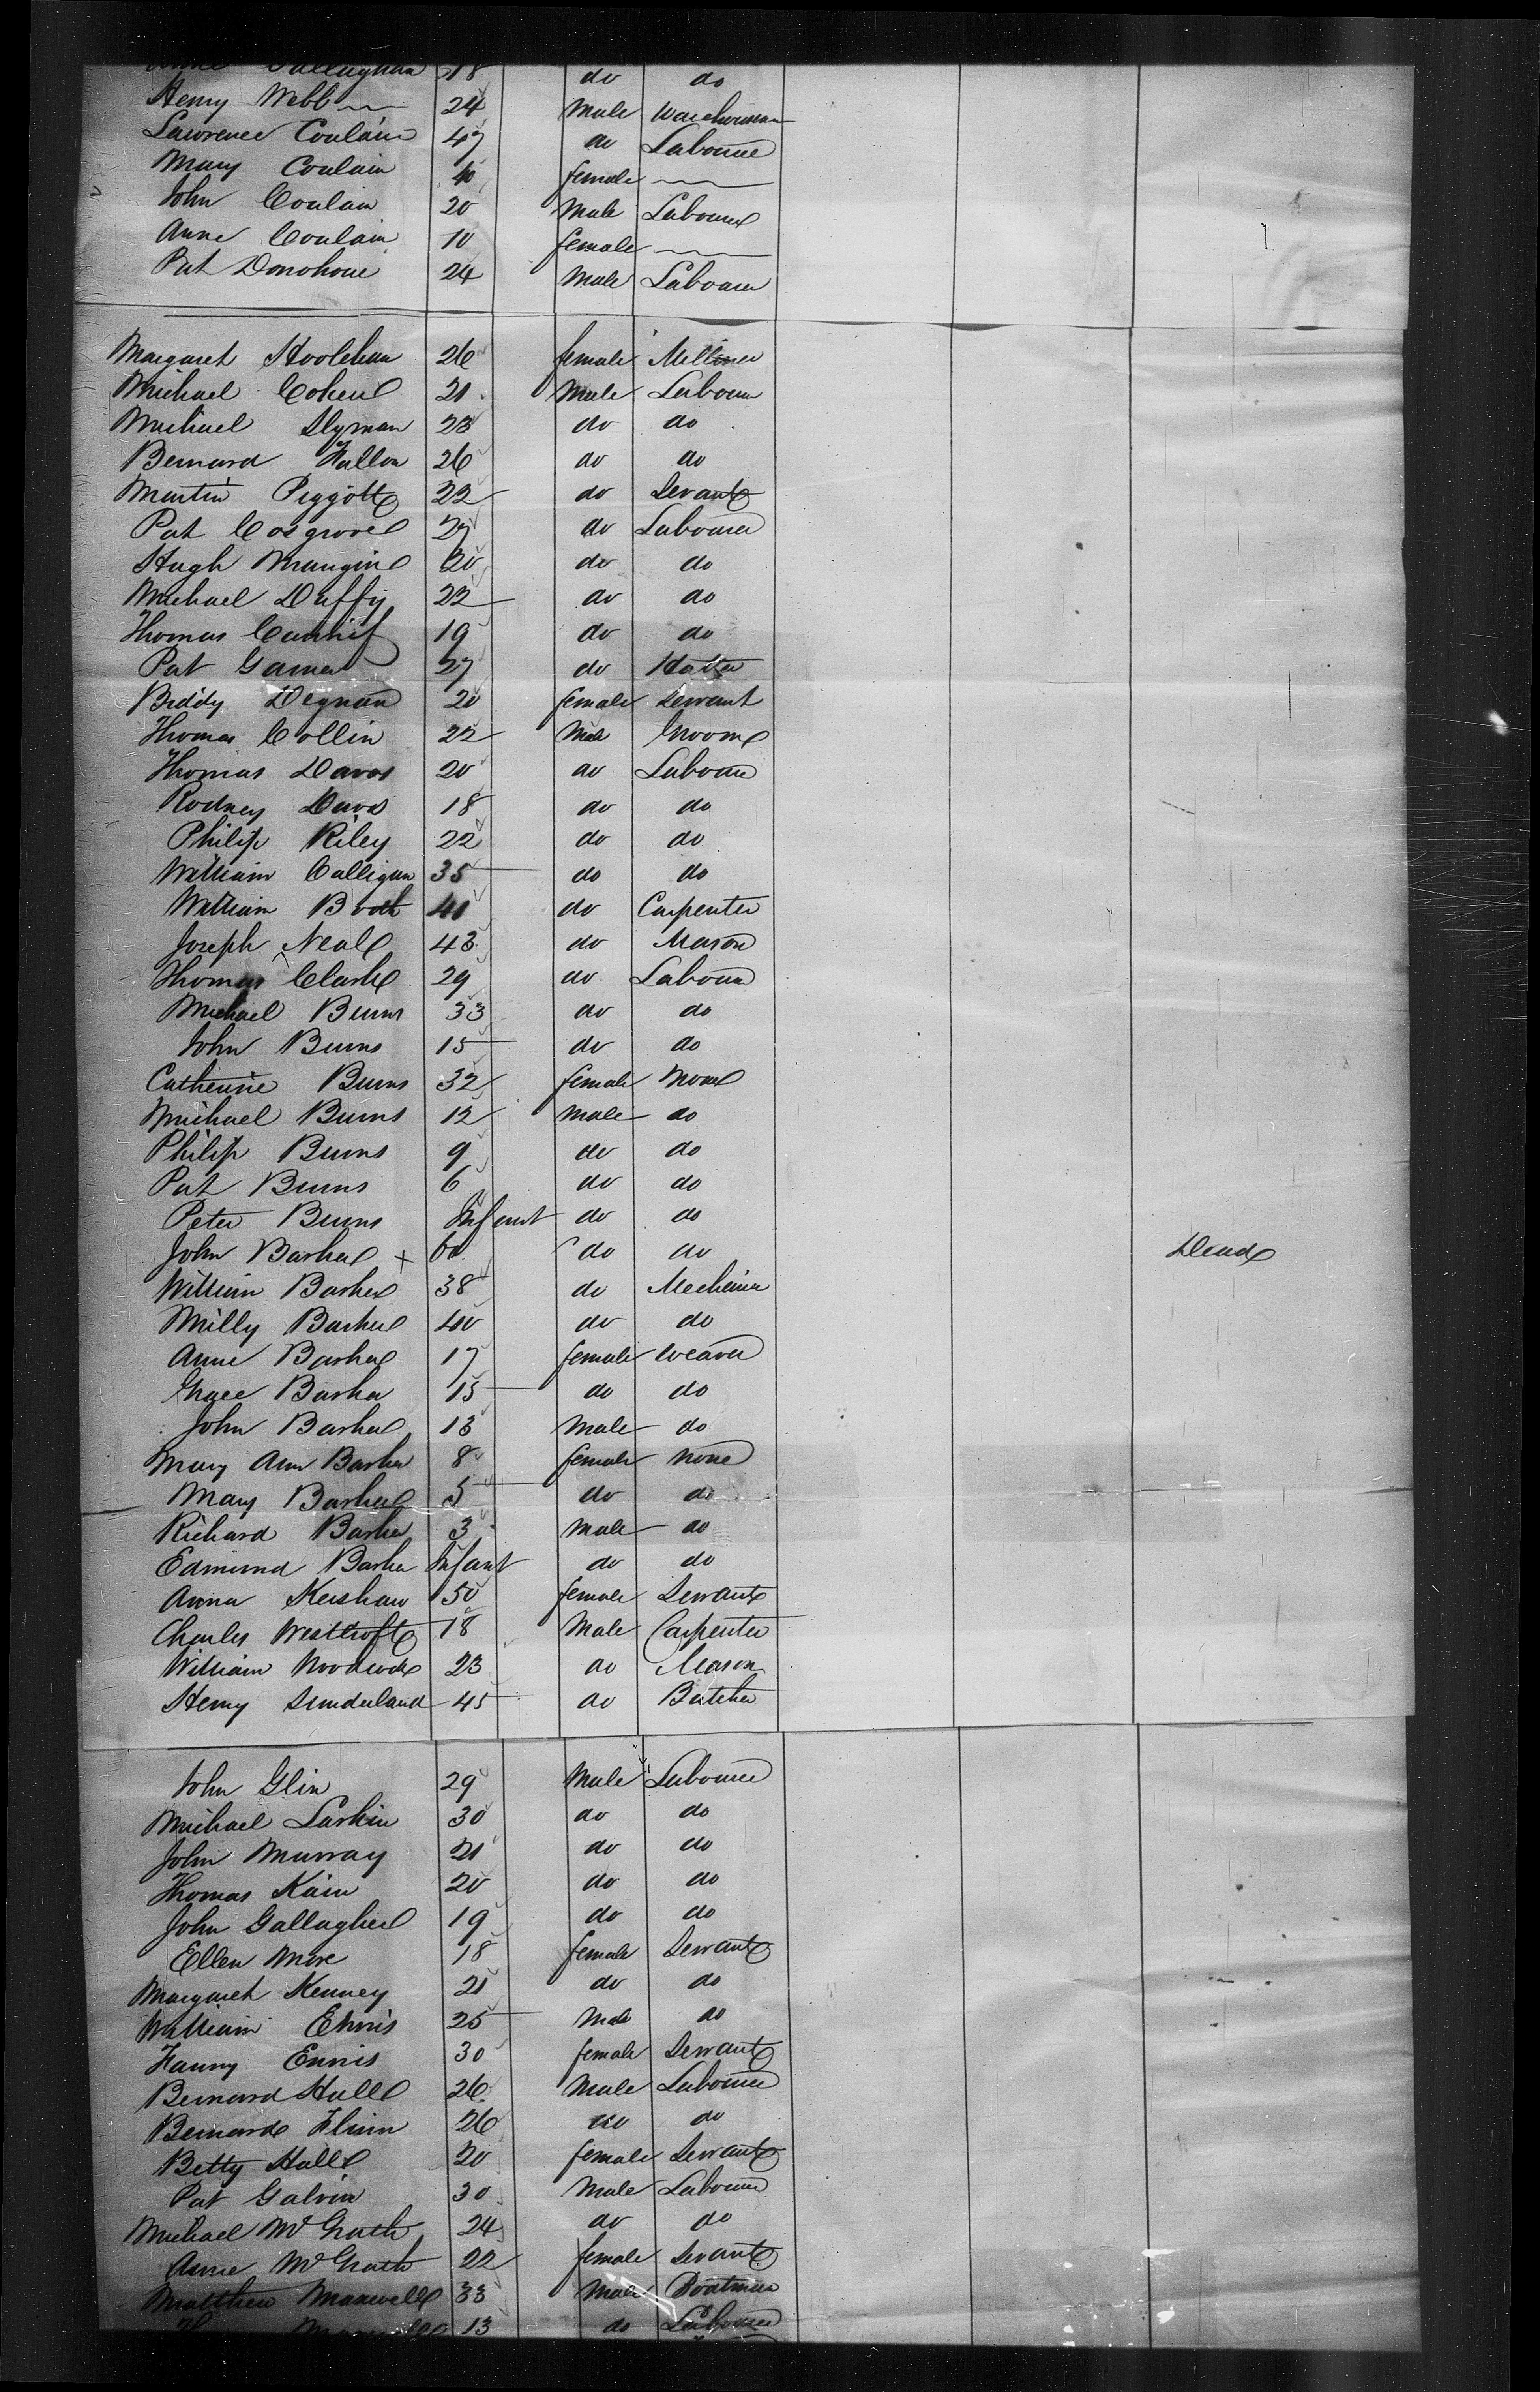 Anne Callaghan 18 do do
Henry Webb 24 Male Warehouseman
Lawrence Conlain 47 do Labourer
Mary Conlain 40 female
John Conlain 20 Male Labourer
Anne Conlain 10 female
Pat Donohoue 24 Male Labourer
Margaret Hoolehan 26 female Milliner
Michael Coher 21 Male Labourer
Michael Slyman 23 do do
Bernard Fallon 26 do do
Martin Piggott 22 do Servant
Pat Cosgrove 27 do Labourer
Hugh Mangin 20 do do
Michael Duffy 22 do do
Thomas Cunnif 19 do do
Pat Garner 27 do Hatter
Biddy Degnan 20 female Servant
Thomas Collin 22 Male Groom
Thomas Davos 20 do Labourer
Rodney Davos 18 do do
Philip Riley 22 do do
William Calligan 35 do do
William Booth 41 do Carpenter
Joseph Neal 43 do Mason
Thomas Clark 29 do Labourer
Michael Burns 33 do do
John Burns 15 do do
Catherine Burns 32 female None
Michael Burns 12 male do
Philip Burns 9 do do
Pat Burns 6 do do
Peter Burns Infant do do
John Barker + 60 do do Dead
William Barker 38 do Mechanic
Milly Barker 40 do do
Anne Barker 17 female weaver
Grace Barker 15 do do
John Barker 13 Male do
Mary Ann Barker 8 female none
Mary Barker 5 do do
Richard Barker 3 Male do
Edmund Barker Infant do do
Anna Kershaw 50 female Servant
Charles Westcroft 18 Male Carpenter
William Woodcock 23 do Mason
Henry Sunderland 45 do Butcher
John Glin 29 Male Labourer
Michael Larkin 30 do do
John Murray 21 do do
Thomas Kain 20 do do
John Gallagher 19 do do
Ellen More 18 female Servant
Margaret Kenney 21 do do
William Ennis 25 Male do
Fanny Ennis 30 female Servant
Bernard Hall 26 Male Labourer
Bernard Flinn 26 do do
Betty Hall 20 female Servant
Pat Galvin 30 Male Labourer
Michael McGrath 24 do do
Anne McGrath 22 female Servant
Matthew Maxwell 33 Male Boatman
Maxwell 13 do Labourer